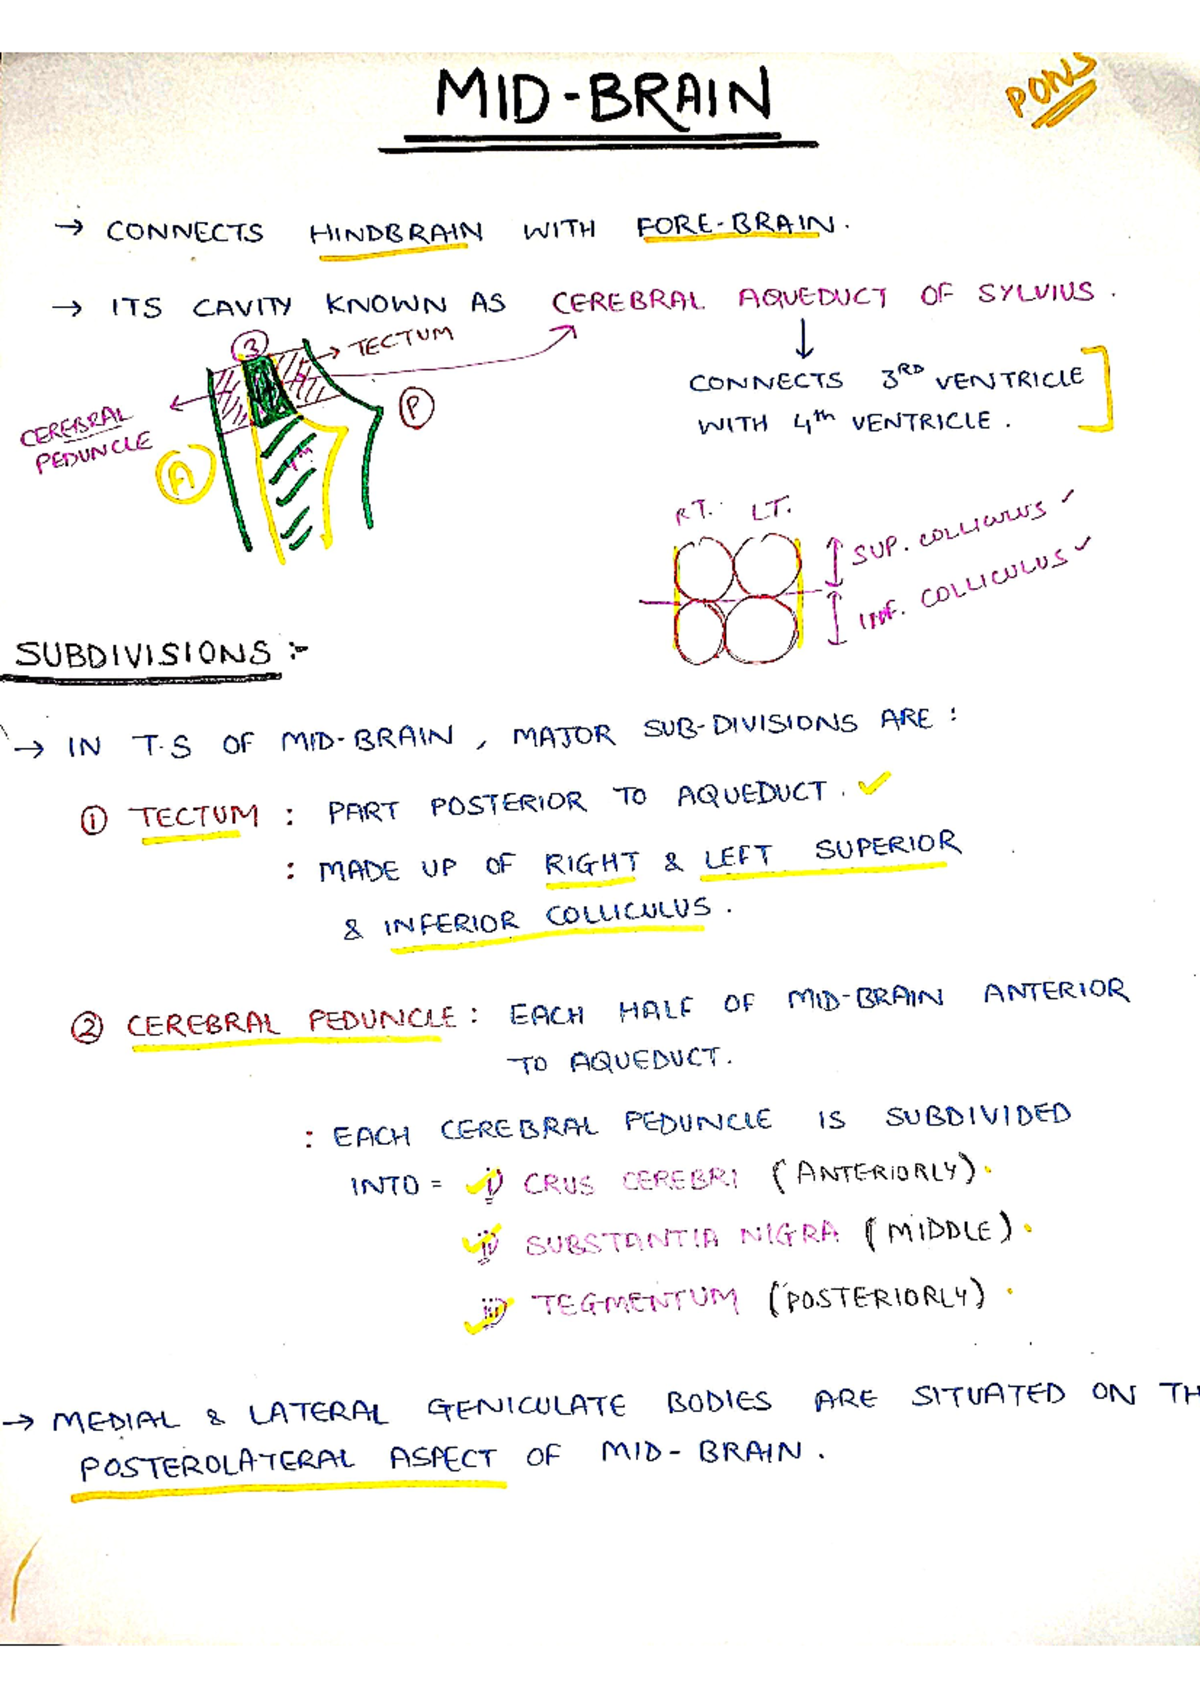 MID-BRAIN
PONS
→ CONNECTS HINDBRAIN WITH FORE-BRAIN.
→ ITS CAVITY KNOWN AS CEREBRAL AQUEDUCT OF SYLVIUS.
3
→ TECTUM
CONNECTS 3RD VENTRICLE
WITH 4th VENTRICLE.
CEREBRAL
PEDUNCLE
P
A
RT. LT.
SUP. COLLICULUS ✓
INF. COLLICULUS ✓
SUBDIVISIONS :-
→ IN T.S OF MID-BRAIN, MAJOR SUB-DIVISIONS ARE :
① TECTUM : PART POSTERIOR TO AQUEDUCT. ✓
: MADE UP OF RIGHT & LEFT SUPERIOR
& INFERIOR COLLICULUS.
② CEREBRAL PEDUNCLE : EACH HALF OF MID-BRAIN ANTERIOR
TO AQUEDUCT.
: EACH CEREBRAL PEDUNCLE IS SUBDIVIDED
INTO = i) CRUS CEREBRI (ANTERIORLY).
ii) SUBSTANTIA NIGRA (MIDDLE).
iii) TEGMENTUM (POSTERIORLY).
→ MEDIAL & LATERAL GENICULATE BODIES ARE SITUATED ON TH
POSTEROLATERAL ASPECT OF MID-BRAIN.